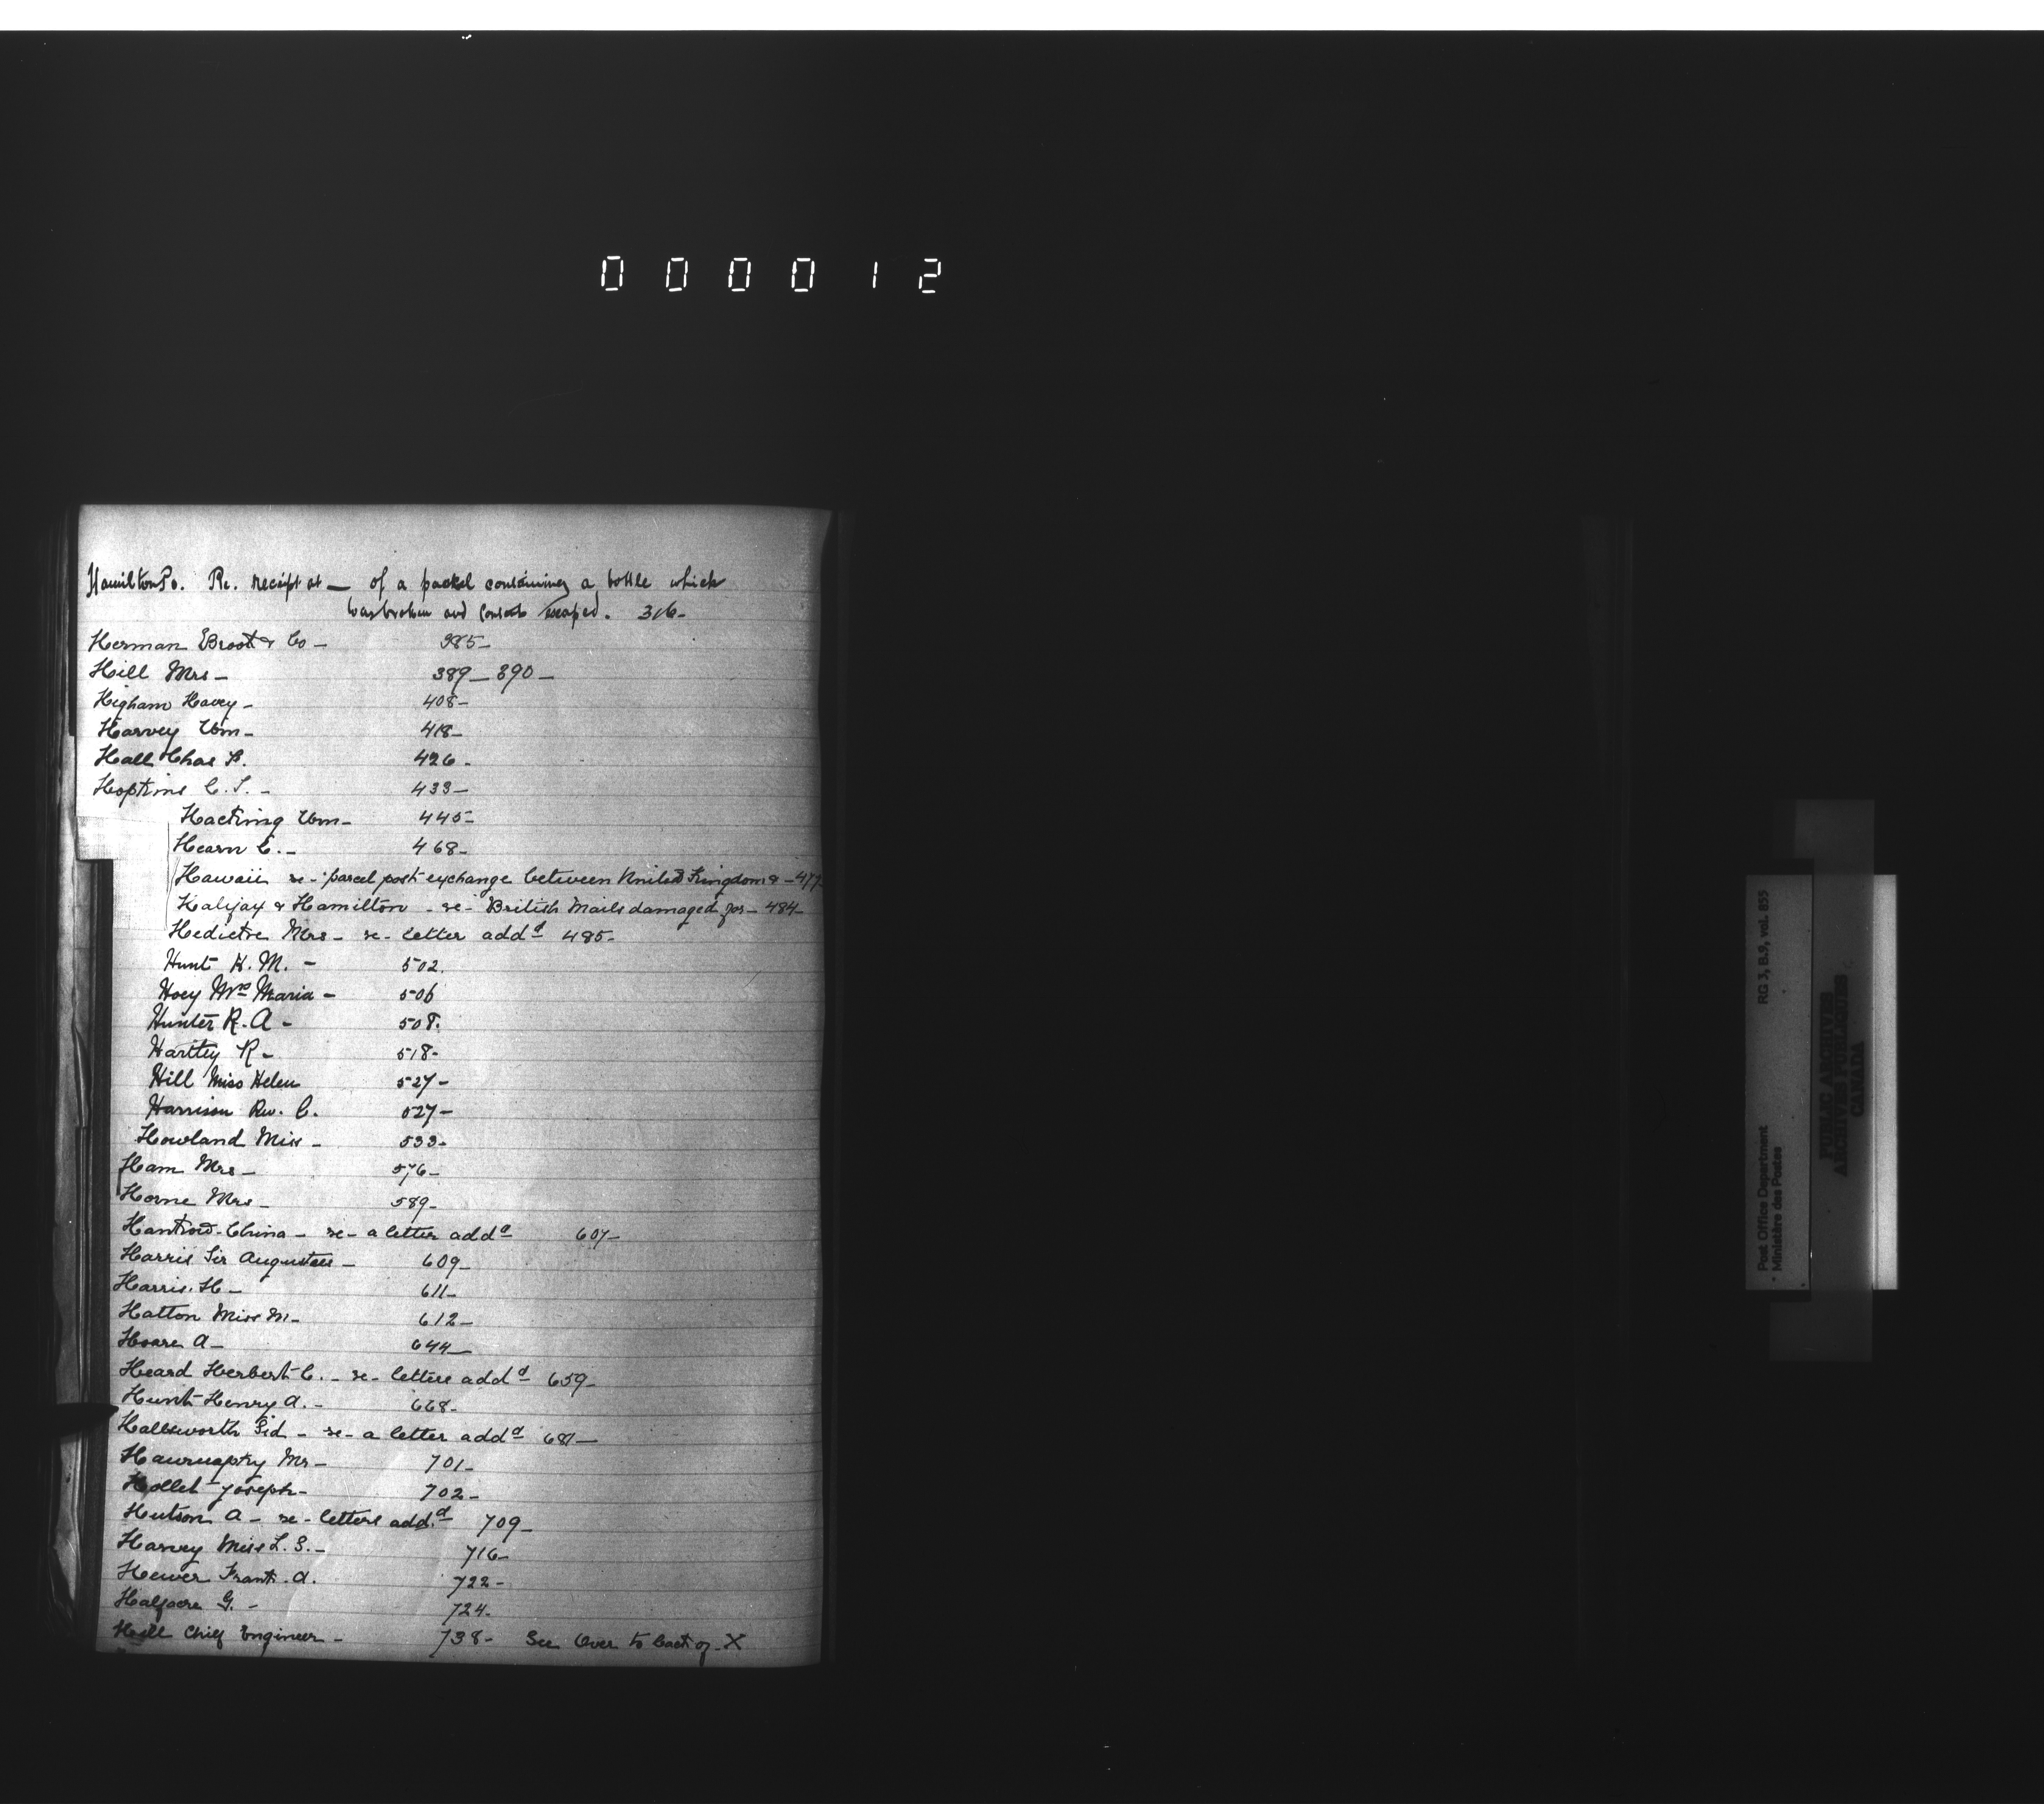 000012
Hamilton Po. Re. receipt at — of a packet containing a bottle which
was broken and contents escaped. 316-
Herman Broot & Co - 385-
Hill Mrs - 389 - 390 -
Higham Havey - 408-
Harvey Wm - 418-
Hall Chas F. 426-
Hopkins C. S. - 433-
Hacking Wm - 445-
Hearn C. - 468-
Hawaii re - parcel post exchange between United Kingdom & - 477
Halifax & Hamilton - re - British Mails damaged for - 484-
Mrs - re - letter addd 485-
Hunt H. M. - 502.
Hoey Mrs Maria - 506
Hunter R. A - 508.
Hartley R - 518-
Hill Miss Helen 527-
Harrison Rev. C. 527-
Howland Miss - 533-
Ham Mrs - 576-
Horne Mrs - 589-
Hankow - China - re - a letter addd 607-
Harris Sir Augustus - 609-
Harris. H - 611-
Hatton Miss M - 612-
Hoare A - 644-
Heard Herbert C. - re - letters addd 659-
Hunt Henry A. - 668-
Hallsworth Sid - re - a letter addd 681-
Mr - 701-
Hollet Joseph - 702-
Hutson A - re - letters addd 709-
Harvey Miss L. S. - 716-
Hewer Frank. A. 722-
Halfacre G. - 724-
Hill Chief Engineer - 738- See Over to back of X
RG 3, B.9, vol. 855
Post Office Department
Ministère des Postes
PUBLIC ARCHIVES
ARCHIVES PUBLIQUES
CANADA